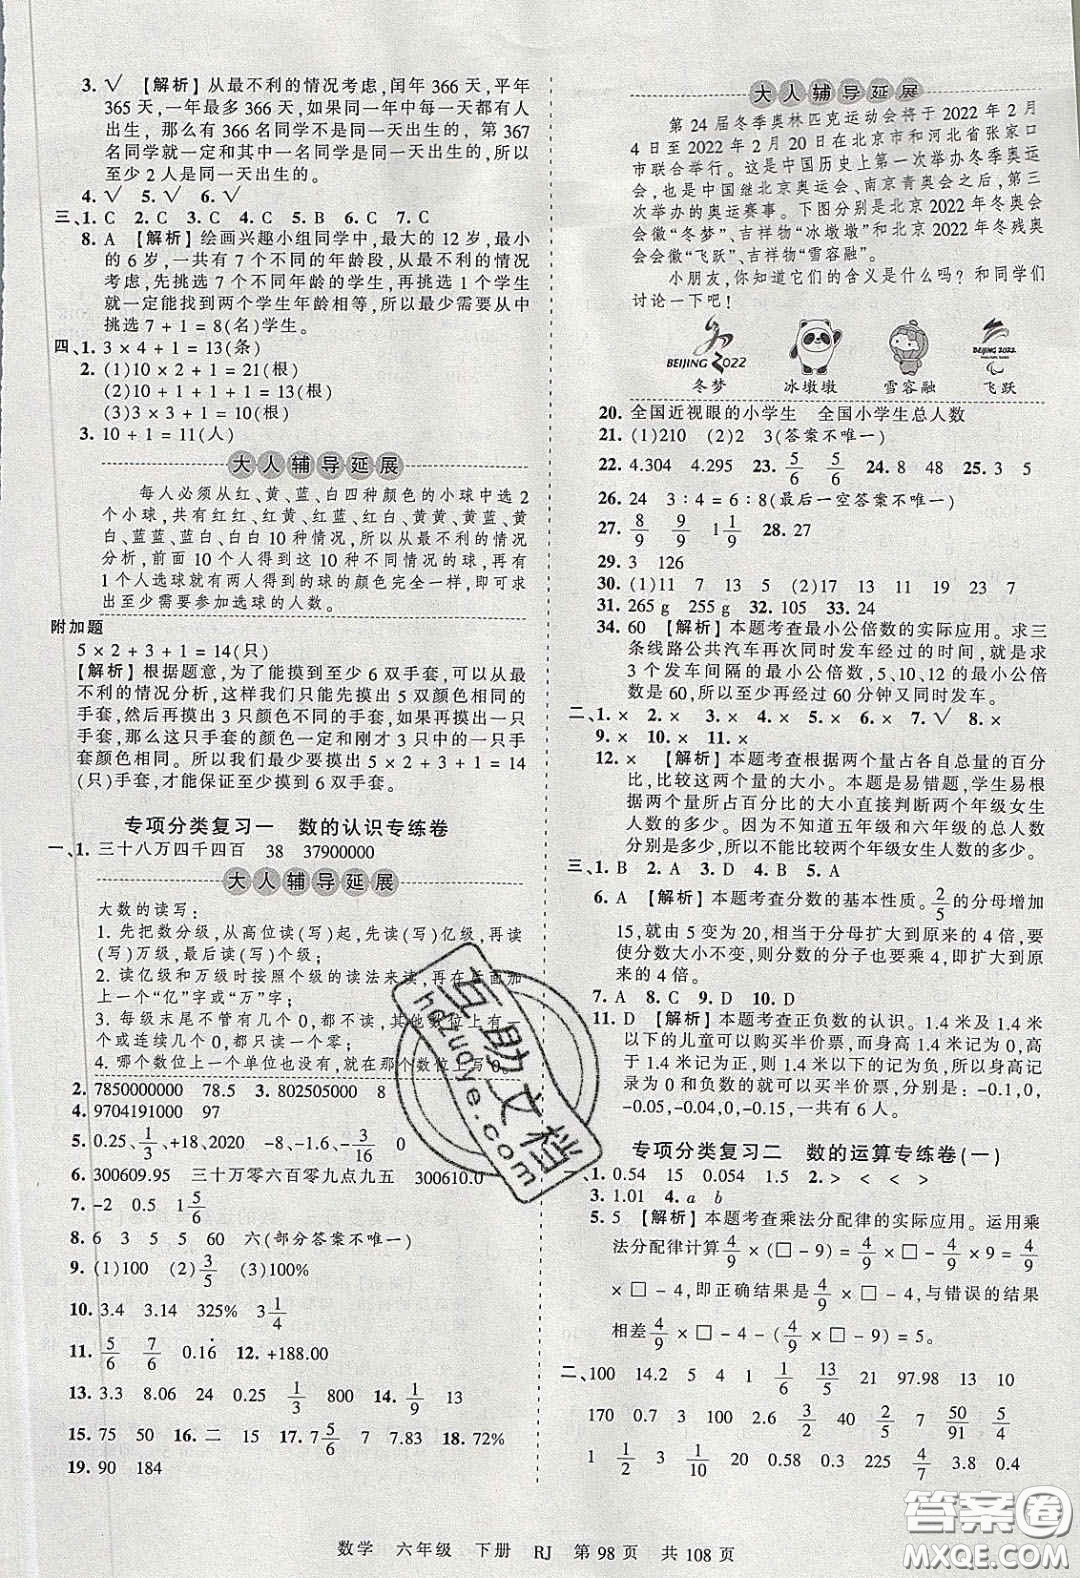 3. √ 【解析】从最不利的情况考虑,闰年 366 天,平年
365 天,一年最多 366 天,如果同一年中每一天都有人
出生,那么有 366 名同学不是同一天出生的,第 367
名同学就一定和其中一名同学是同一天出生的,所以
至少 2 人是同一天出生的。
4. √ 5. √ 6. √
三、1. C 2. C 3. C 4. C 5. B 6. C 7. C
8. A 【解析】绘画兴趣小组同学中,最大的 12 岁,最小
的 6 岁,一共有 7 个不同的年龄段,从最不利的情况
考虑,先挑选 7 个不同年龄的学生,再挑选 1 个学生
就一定能找到两个学生年龄相等,所以最少需要从中
挑选 7 + 1 = 8(名)学生。
四、1. 3 × 4 + 1 = 13(条)
2. (1)10 × 2 + 1 = 21(根)
(2)10 + 1 + 1 + 1 = 13(根)
(3)3 × 2 + 1 = 7(根)
3. 10 + 1 = 11(人)
大人辅导延展
每人必须从红、黄、蓝、白四种颜色的小球中选 2
个小球,共有红红、红黄、红蓝、红白、黄黄、黄蓝、黄
白、蓝蓝、蓝白、白白 10 种情况,所以从最不利的情况
分析,前面 10 个人得到这 10 种不同情况的球,再有
1 个人选球就有两人得到的球的颜色完全一样,即可求
出至少需要参加选球的人数。
附加题
5 × 2 + 3 + 1 = 14(只)
【解析】根据题意,为了能摸到至少 6 双手套,可以从最
不利的情况分析,这样我们只能先摸出 5 双颜色相同的
手套,然后再摸出 3 只颜色不同的手套,如果再摸出一只
手套,那么这只手套的颜色一定和那 3 只中的一只手套
颜色相同。所以我们最少要摸出 5 × 2 + 3 + 1 = 14
(只)手套,才能保证至少摸到 6 双手套。
专项分类复习一 数的认识专练卷
一、1. 三十八万四千四百 38 37900000
大人辅导延展
大数的读写:
1. 先把数分级,从高位读(写)起,先读(写)亿级,再读
(写)万级,最后读(写)个级;
2. 读亿级和万级时按照个级的读法来读,再在后面加
上一个“亿”字或“万”字;
3. 每级末尾不管有几个 0,都不读,其他数位上有一
个或连续几个 0,都只读一个零;
4. 哪个数位上一个单位也没有,就在那个数位上写 0。
2. 7850000000 78.5 3. 802505000 8
4. 9704191000 97
5. 0.25、1/3、+18、2020 -8、-1.6、-3/16 0
6. 300609.95 三十万零六百零九点九五 300610.0
7. -2 0.5 1 5/6
8. 6 3 5 5 60 六(部分答案不唯一)
9. (1)100 (2)3/5 (3)100%
10. 3.4 3.14 325% 3 1/4
11. 5/6 7/6 0.16̇ 12. +188.00
13. 3.3 8.06 24 0.25 1/3 800 14. 1/9 13
15. 75 50 16. 二 15 17. 7 5/6 7 7.83 18. 72%
19. 90 184
大人辅导延展
第 24 届冬季奥林匹克运动会将于 2022 年 2 月
4 日至 2022 年 2 月 20 日在北京市和河北省张家口
市联合举行。这是中国历史上第一次举办冬季奥运
会,也是中国继北京奥运会、南京青奥会之后,第三
次举办的奥运赛事。下图分别是北京 2022 年冬奥会
会徽“冬梦”、吉祥物“冰墩墩”和北京 2022 年冬残奥
会会徽“飞跃”、吉祥物“雪容融”。
小朋友,你知道它们的含义是什么吗?和同学们
讨论一下吧!
BEIJING 2022 BEIJING 2022
冬梦 冰墩墩 雪容融 飞跃
20. 全国近视眼的小学生 全国小学生总人数
21. (1)210 (2)2 3(答案不唯一)
22. 4.304 4.295 23. 5/6 5/6 24. 8 48 25. 3 5
26. 24 3 : 4 = 6 : 8(最后一空答案不唯一)
27. 8/9 9/9 1 1/9 28. 27
29. 3 126
30. (1)11 7 13 5 (2)17 13 19 11 23 7
31. 265 g 255 g 32. 105 33. 24
34. 60 【解析】本题考查最小公倍数的实际应用。求三
条线路公共汽车再次同时发车经过的时间,就是求
3 个发车间隔的最小公倍数,5、10、12 的最小公倍
数是 60,所以至少再经过 60 分钟又同时发车。
二、1. × 2. × 3. × 4. × 5. × 6. × 7. √ 8. ×
9. × 10. × 11. ×
12. × 【解析】本题考查根据两个量占各自总量的百分
比,比较这两个量的大小。本题是易错题,学生易根
据两个量所占百分比的大小直接判断两个年级女生
人数的多少。因为不知道五年级和六年级的总人数
分别是多少,所以无法比较两个年级女生人数的多少。
三、1. B 2. A 3. D 4. B 5. A
6. A 【解析】本题考查分数的基本性质。2/5 的分母增加
15,就由 5 变为 20,相当于分母扩大到原来的 4 倍,要
使分数大小不变,则分数的分子也要乘 4,即扩大到原
来的 4 倍。
7. A 8. C 9. C 10. D
11. D 【解析】本题考查正负数的认识。1.4 米及 1.4 米
以下的儿童可以购买半价票,而题中所给数据是以
高于 1.4 米记为正,1.4 米以下的记为负,所以记录
是 0 和负数的都可以买半价票,分别是:-0.1、0、
-0.05、-0.04、0、-0.15,一共有 6 人。
专项分类复习二 数的运算专练卷(一)
一、1. 0.54 15 0.054 1.5 2. > < < >
3. 1.01 4. a b
5. 5 【解析】本题考查乘法分配律的实际应用。运用乘
法分配律计算 4/9 × (□ - 9) = 4/9 × □ - 4/9 × 9 = 4/9
× □ - 4,即正确结果是 4/9 × □ - 4,与错误的结果
相差 4/9 × □ - 4 - (4/9 × □ - 9) = 5。
二、100 14.2 5 14 1 1/6 13/5 21 97.98 13 10
170 0.7 1 1 2 3/2 0.4 2/5 7 50/91 5/4
1 1/2 3 1/10 20 0.2 225 4/7 3.8 0.4
数学 六年级 下册 RJ 第 98 页 共 108 页
互助文档
hdzuoye.com
答案圈
MXQE.COM